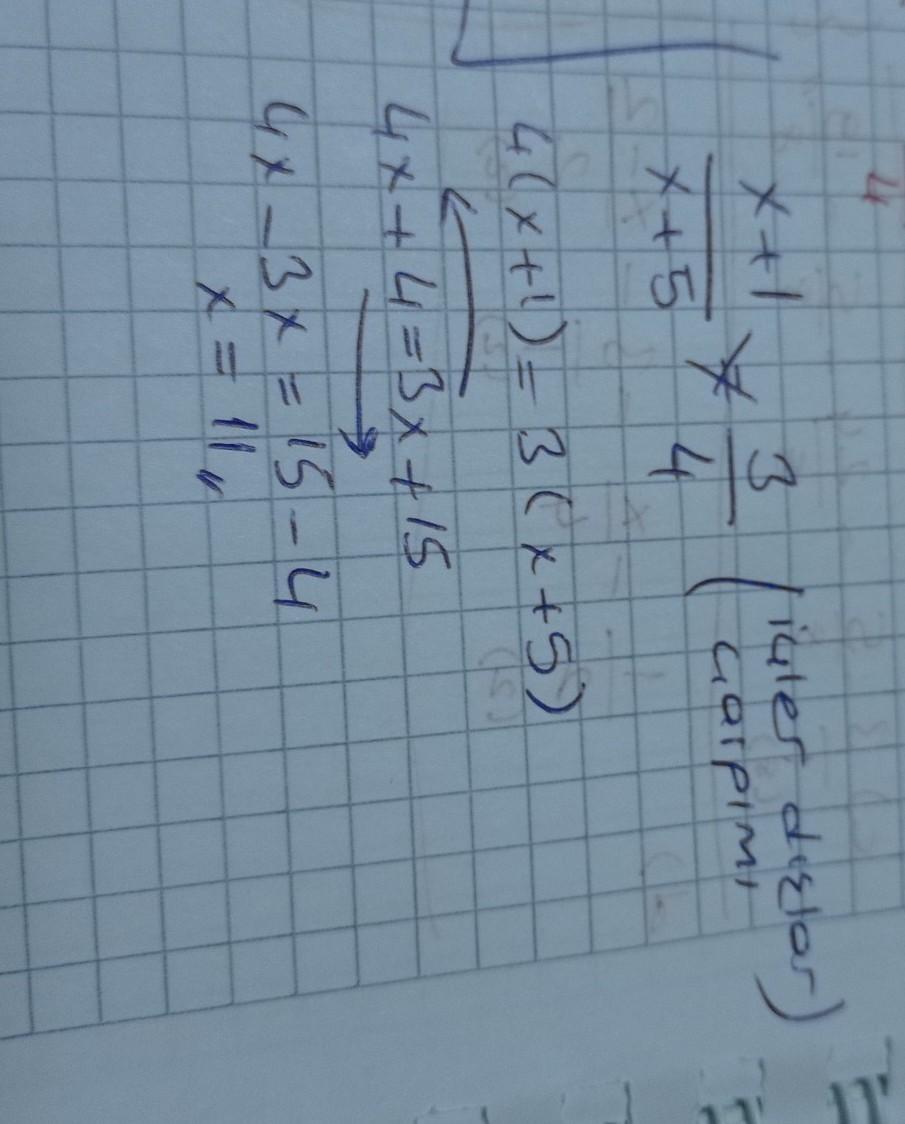 4
x+1 / x+5 = 3/4 (içler dışlar)
çarpımı
4(x+1) = 3(x+5)
4x + 4 = 3x + 15
4x - 3x = 15 - 4
x = 11 //